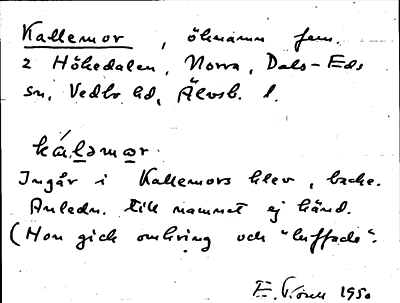 Kallemor, öknamn fem.
2 Hökedalen, Norra, Dals-Eds
sn, Vedbo hd, Älvsb. l.
kál<u>ə</u>m<u>a</u>r
Ingår i Kallemors klev, backe.
Anledn. till namnet ej känd.
(Hon gick omkring och "luffade".
E. 1950